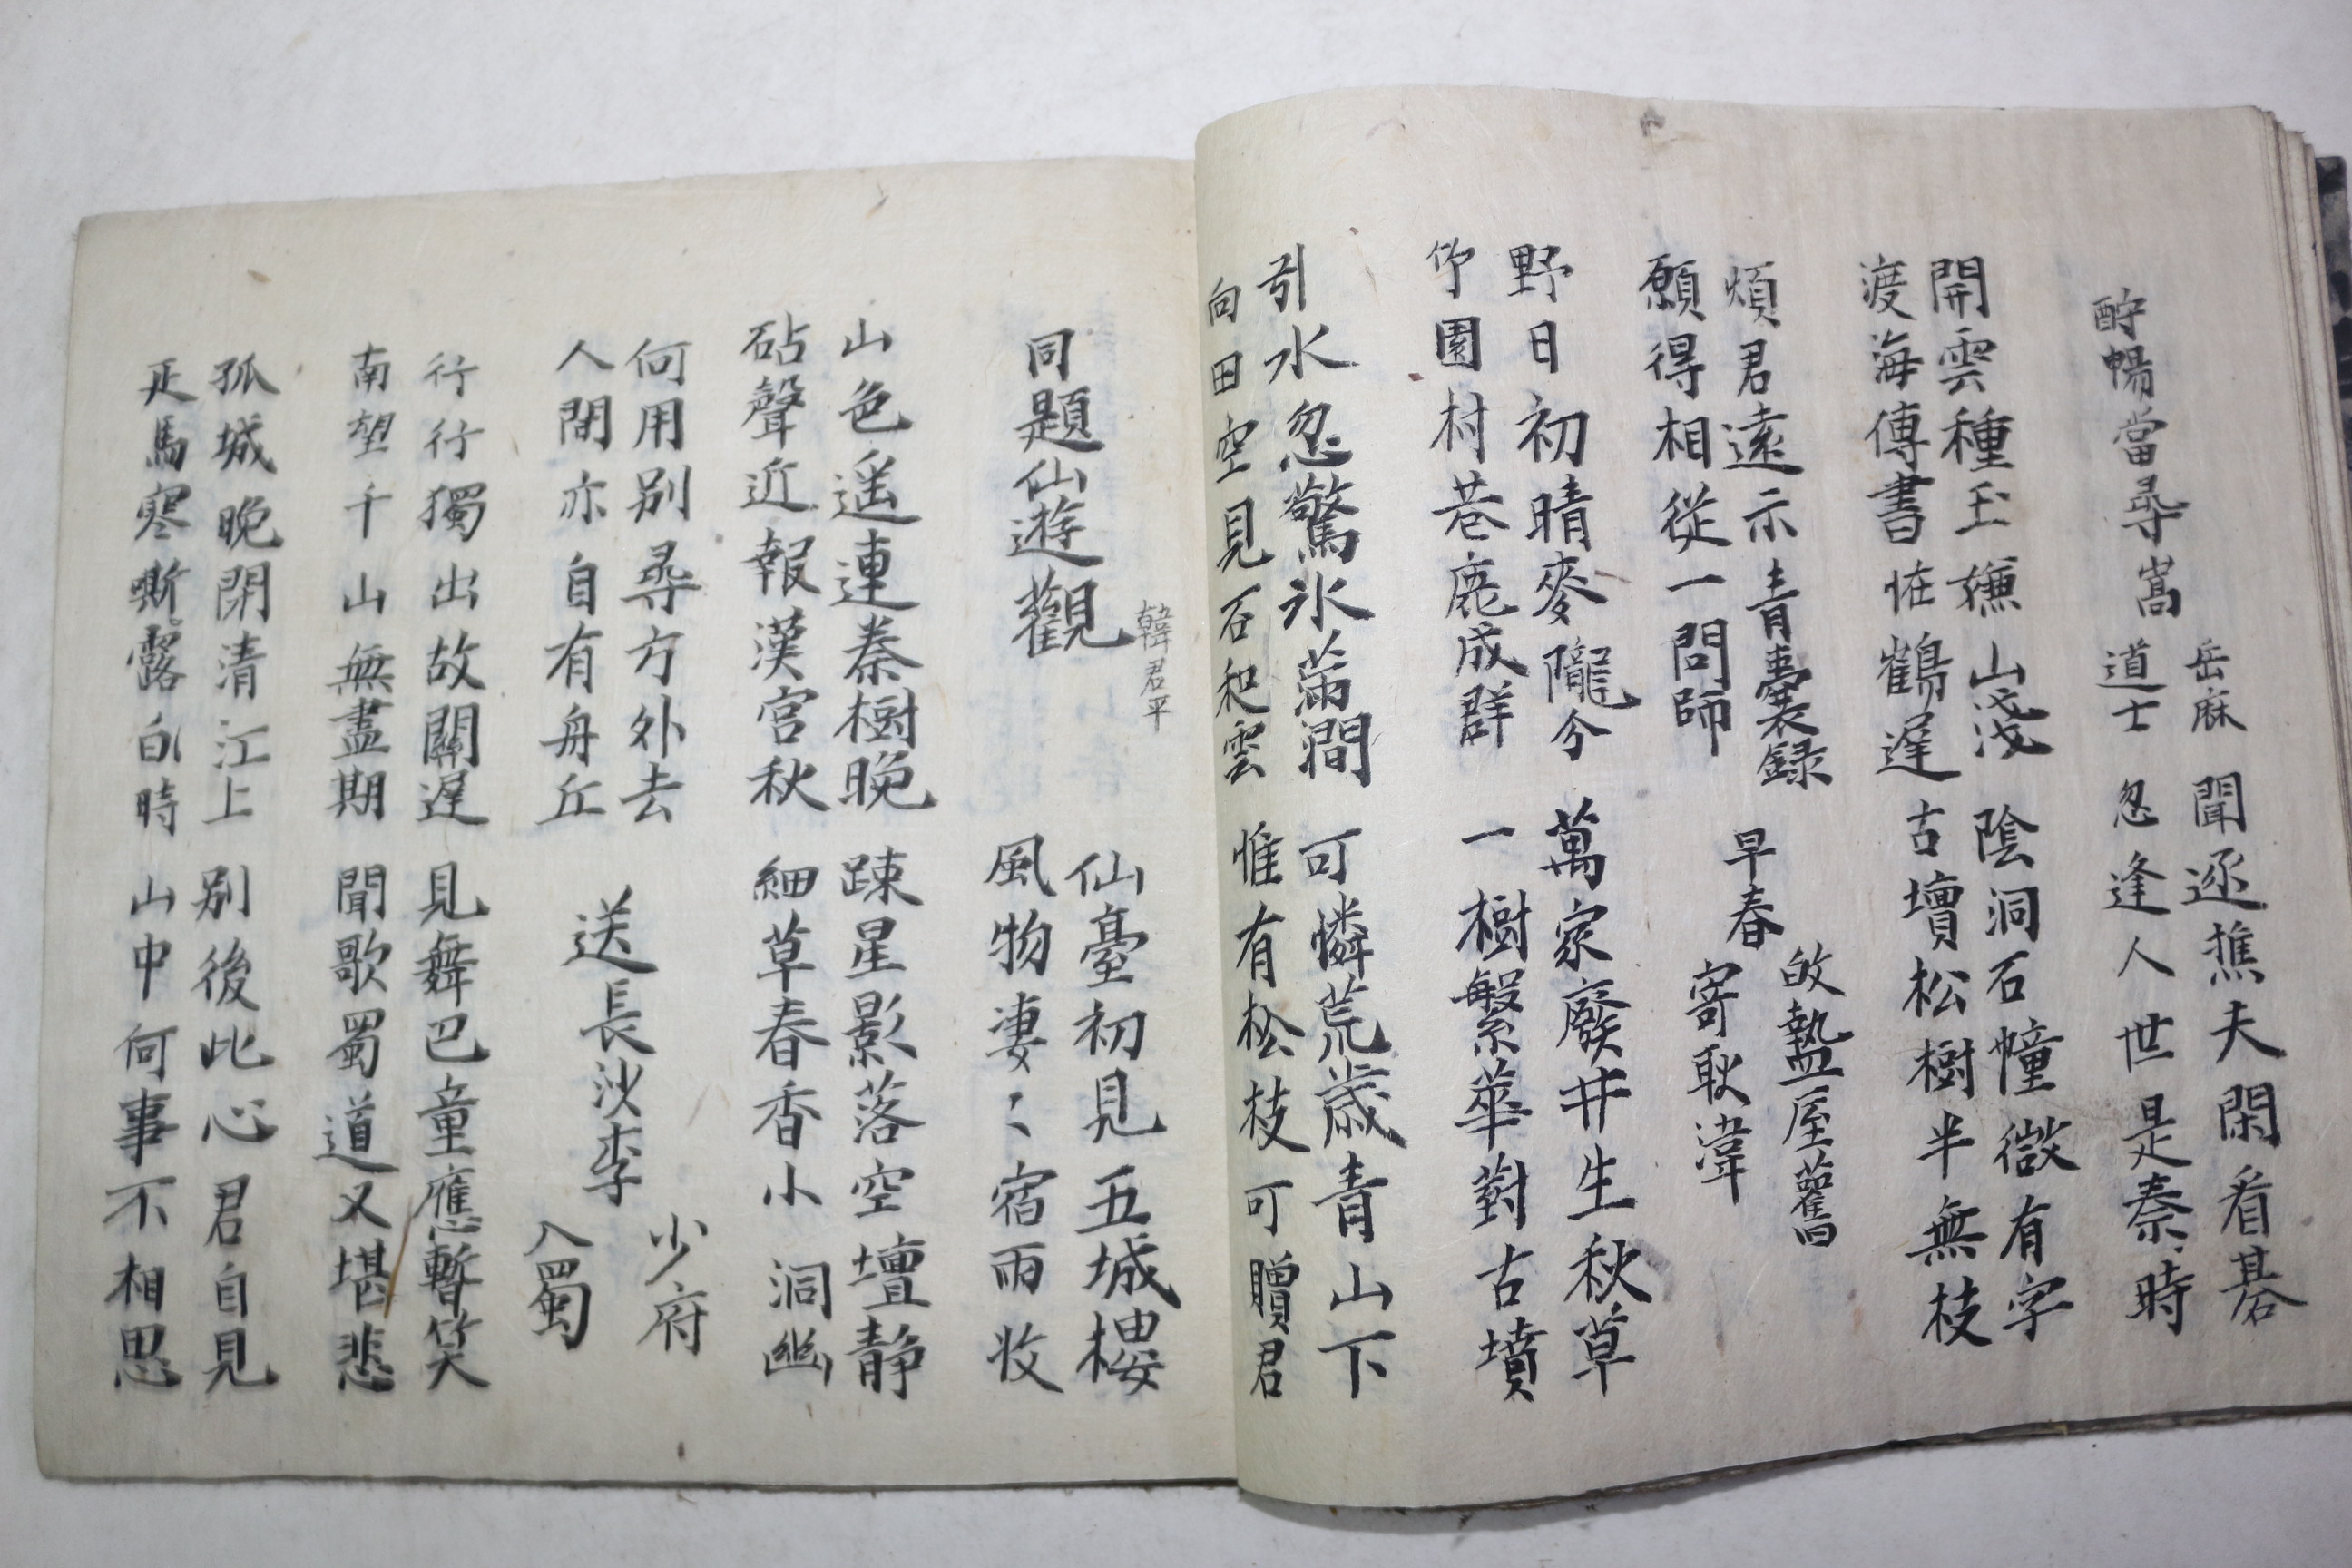 酧暢當尋嵩
岳麻
道士
聞逐樵夫閑看碁
忽逢人世是秦時
開雲種玉嫌山淺
渡海傳書恠鶴遲
陰洞石幢微有字
古壇松樹半無枝
煩君遠示青囊録
願得相從一問師
早春
故盩屋舊
寄耿湋
野日初晴麥隴分
竹園村巷鹿成群
萬家廢井生秋草
一樹繁華對古墳
引水忽驚氷滿澗
向田空見石和雲
可憐荒歲青山下
惟有松枝可贈君
同題仙遊觀
韓君平
仙臺初見五城樓
風物凄〻宿雨收
山色遥連秦樹晚
砧聲近報漢宮秋
踈星影落空壇静
細草春香小洞幽
何用別尋方外去
人間亦自有丹丘
送長沙李
少府
入蜀
行行獨出故關遲
南望千山無盡期
見舞巴童應暫笑
聞歌蜀道又堪悲
孤城晚閉清江上
疋馬寒嘶露白時
別後此心君自見
山中何事不相思